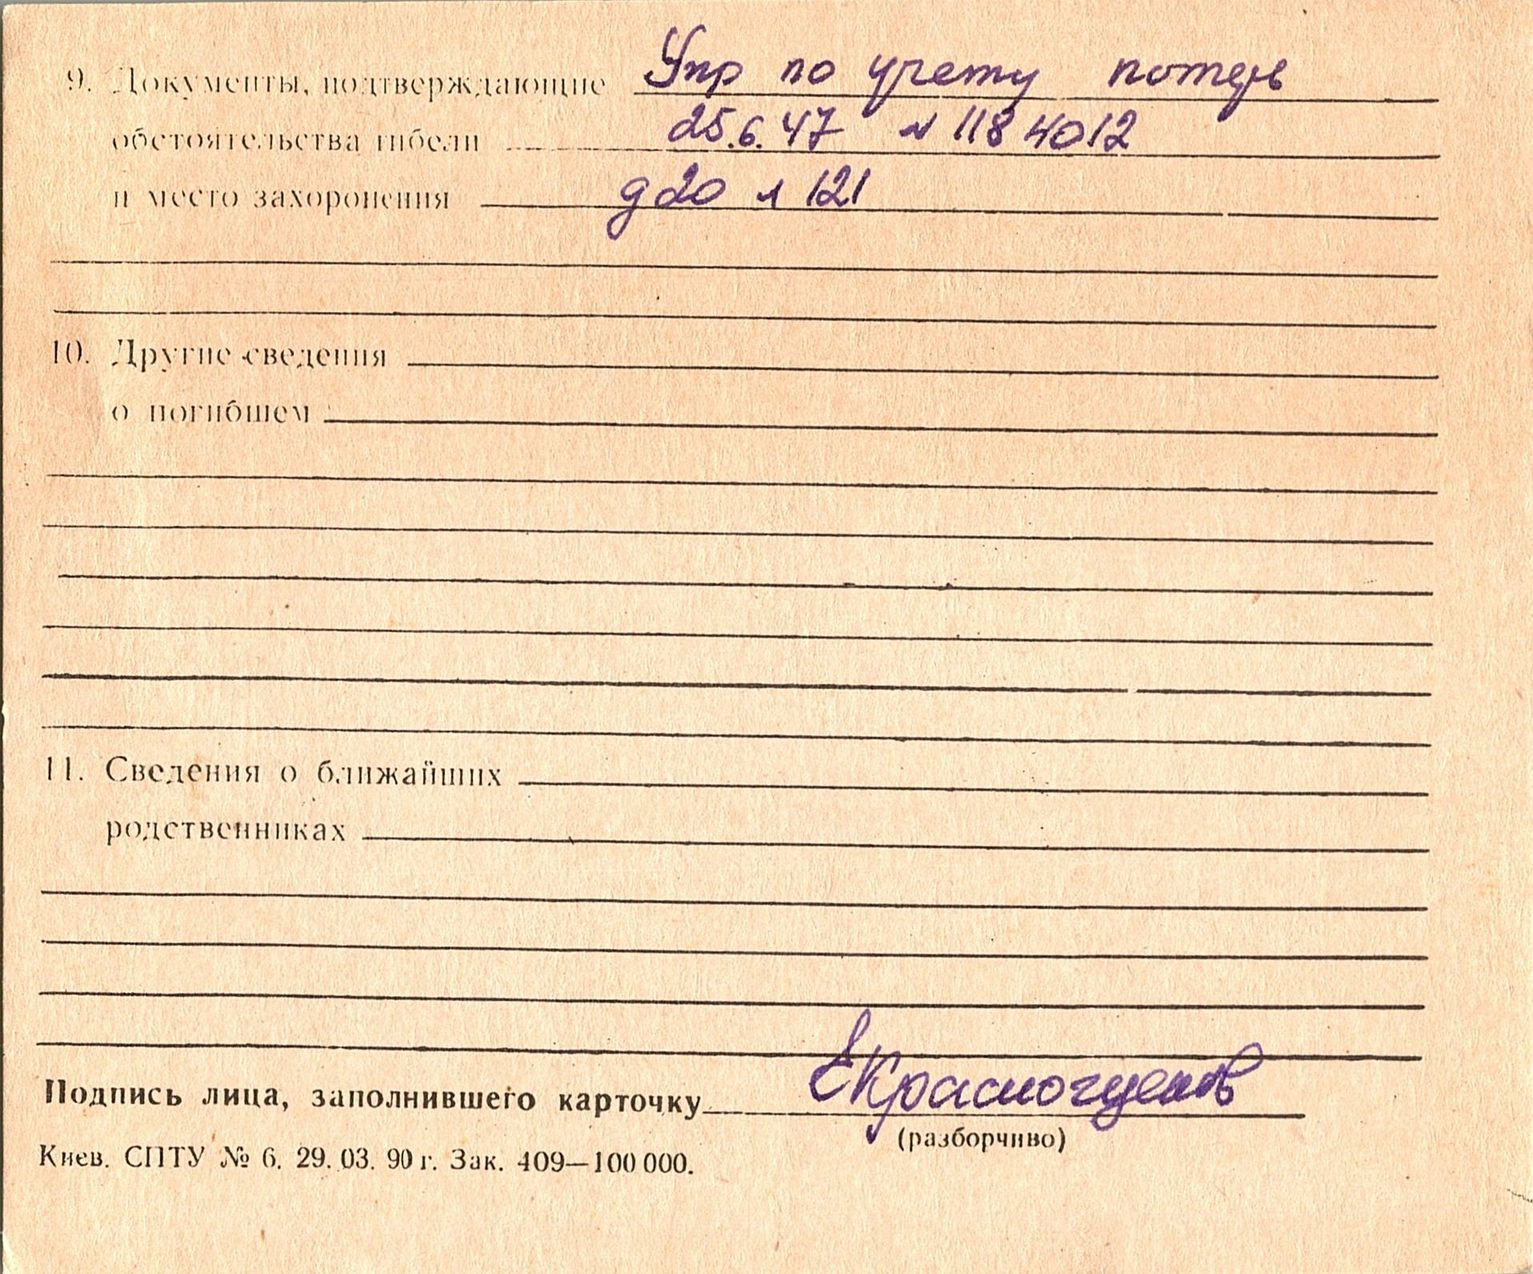 9. Документы, подтверждающие Упр по учету потерь
обстоятельства гибели 25.6.47 № 1184012
и место захоронения д 20 л 121
10. Другие сведения
о погибшем
11. Сведения о ближайших
родственниках
Подпись лица, заполнившего карточку
(разборчиво)
Киев. СПТУ № 6. 29. 03. 90 г. Зак. 409—100 000.